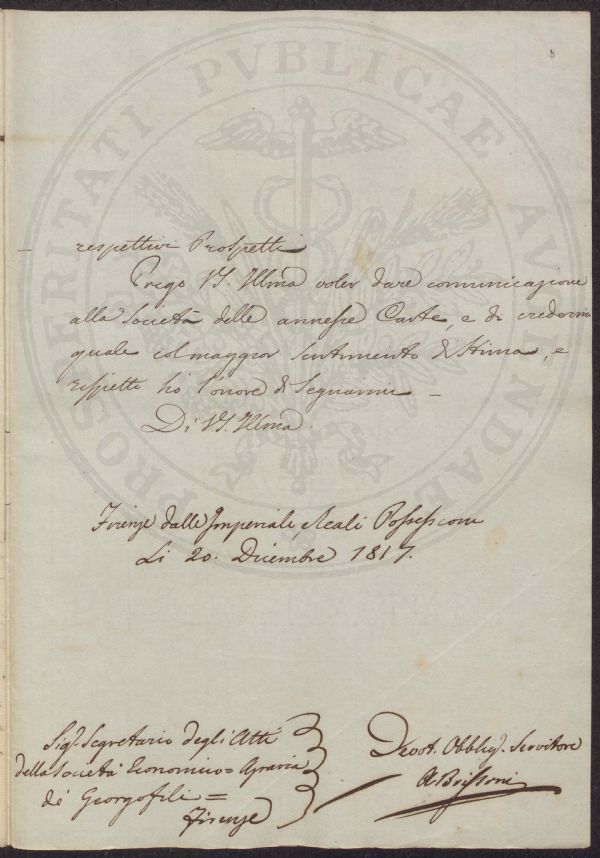 8
PROSPERITATI PVBLICAE AVGENDAE
respettivi Prospetti
Prego VS. Illma voler dare comunicazione
alla Società delle annesse Carte, e di credermi
quale col maggior sentimento di Stima, e
rispetto ho l'onore di Segnarmi –
Di VS. Illma
Firenze dalle Imperiali, e Reali Possessioni
Li 20. Dicembre 1817.
Sigr. Segretario degli Atti
della Società Economico = Agraria
de' Georgofili =
Firenze
Devot. Obblig. Servitore